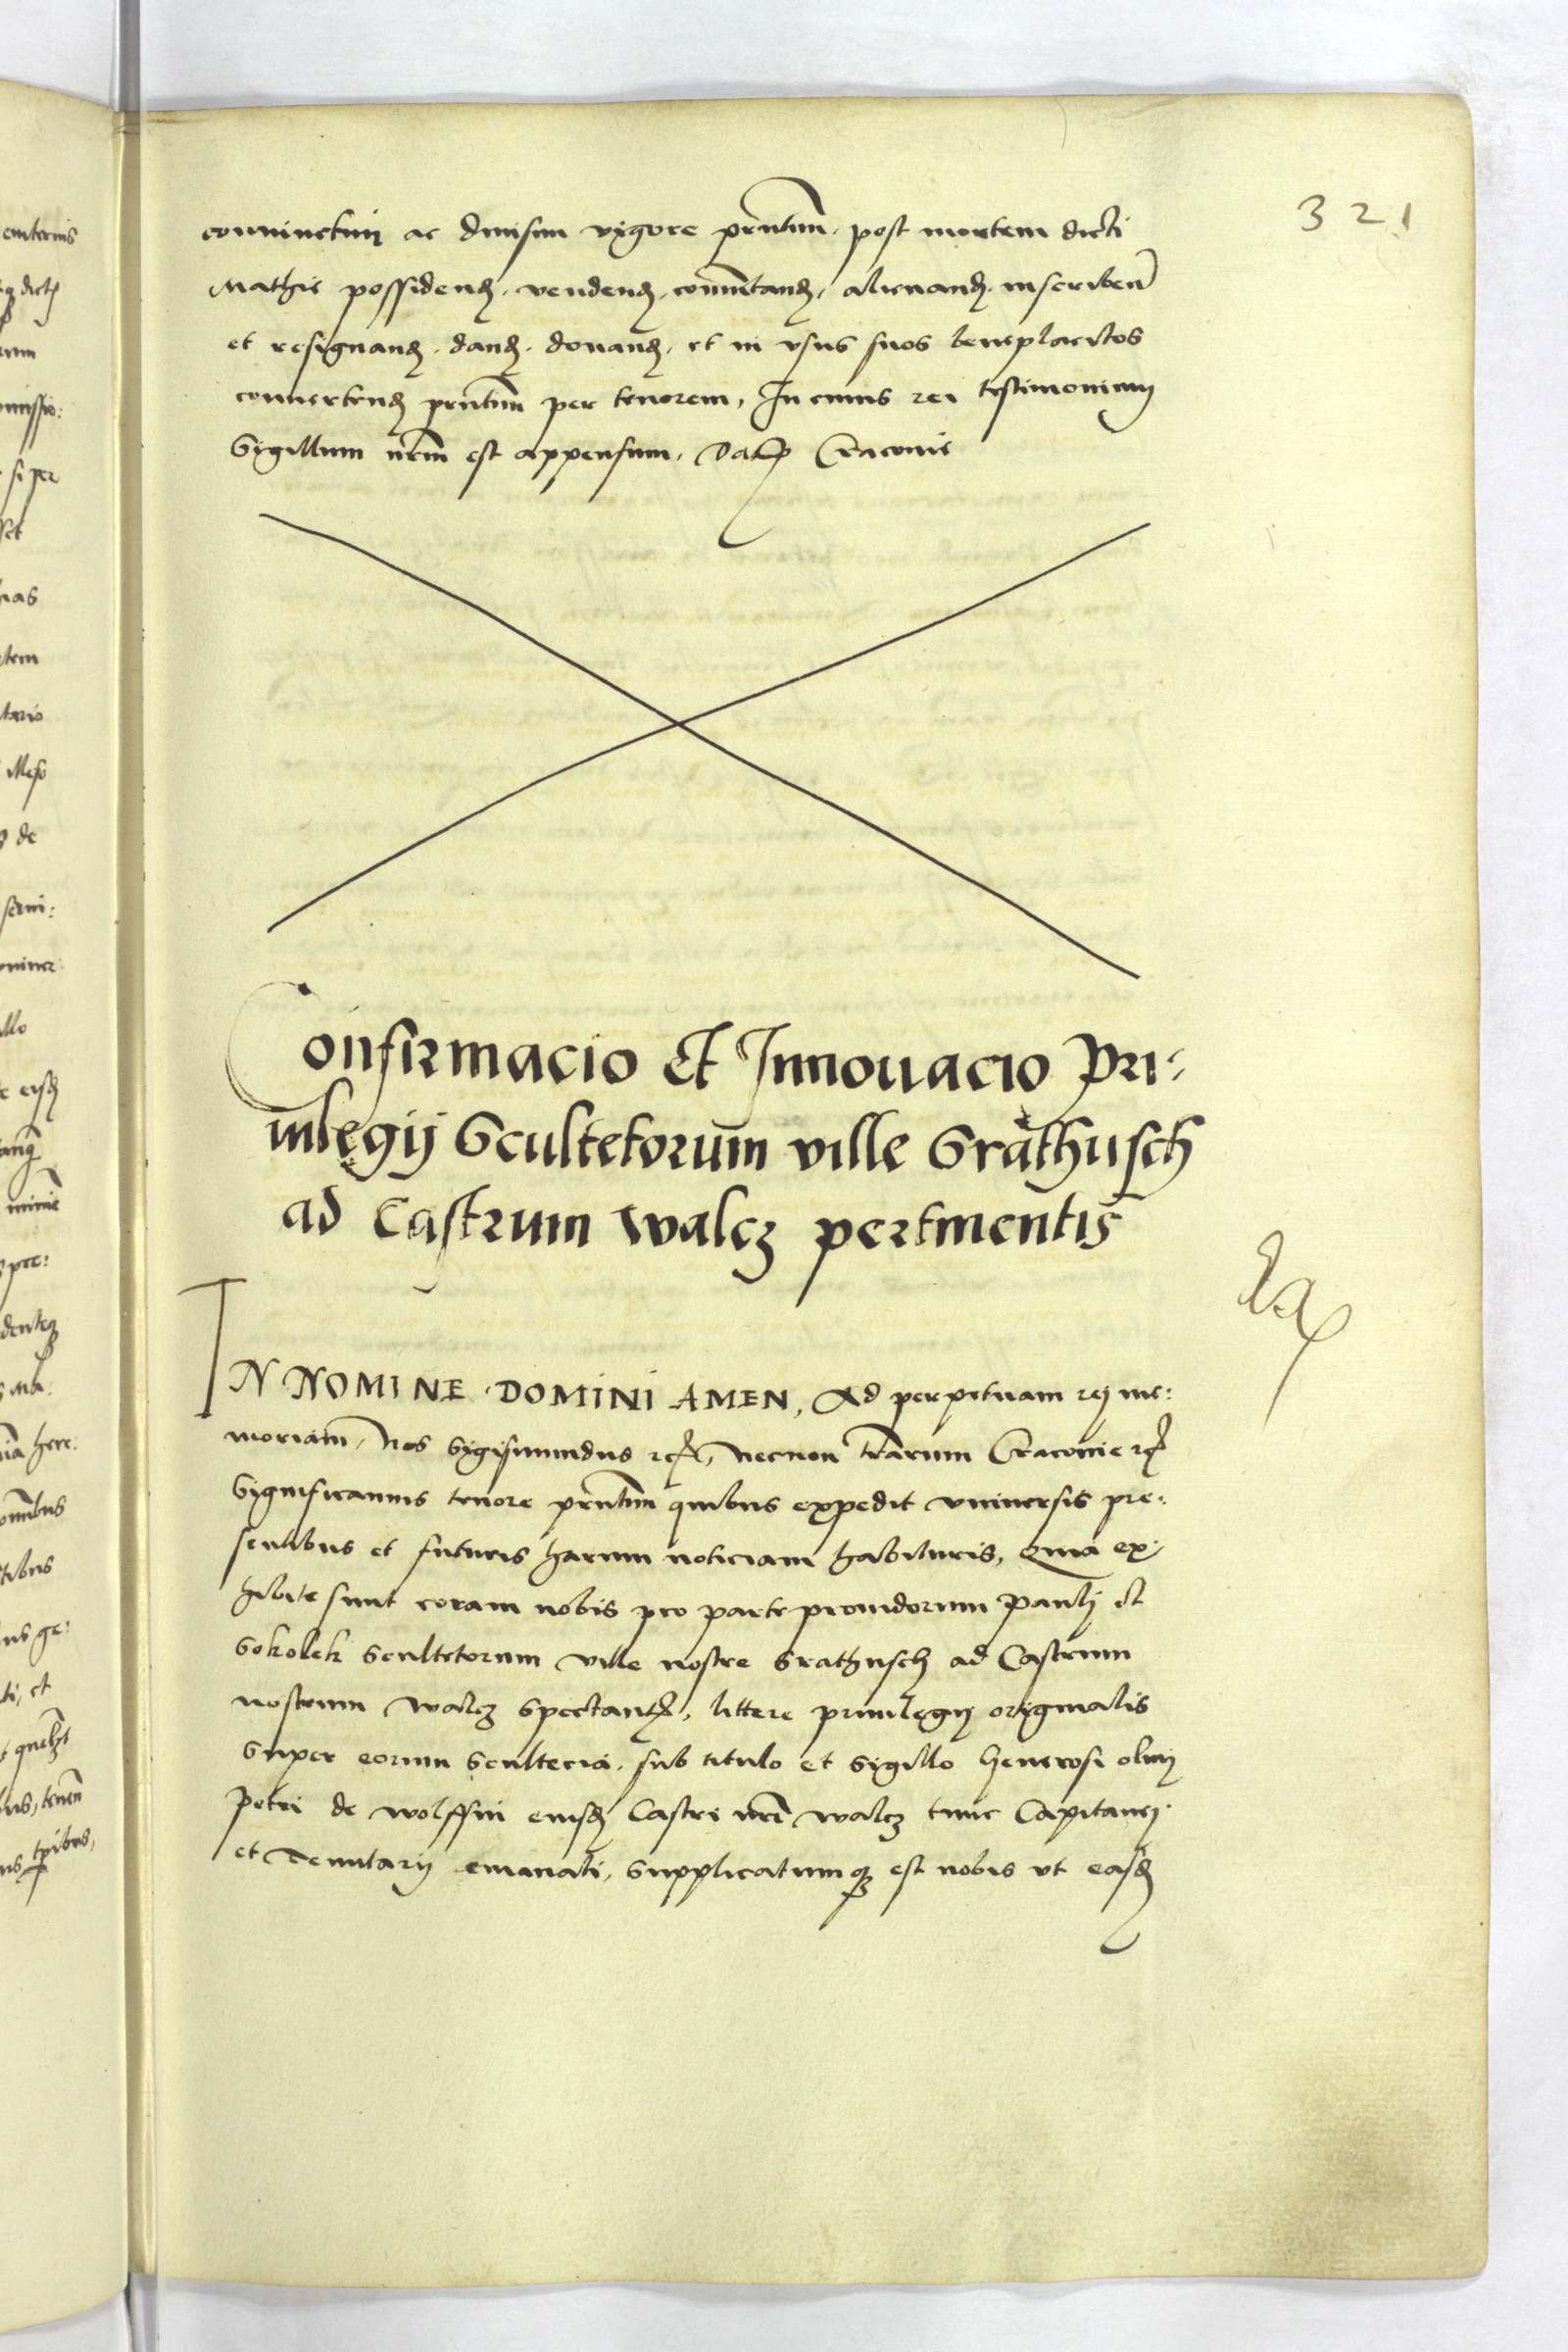 321
conninctim ac divisim vigore prntium. post mortem dicti
Mathie possidend. vendend. comutand. alienand. inscribend
et resignand. dand. donand. et in vsus suos beneplacitos
conuertend prntium per tenorem, In cuius rei testimonium
Sigillum nrm est appensum. Dat Cracouie
Confirmacio et Innouacio Pri-
uilegij Scultetorum ville Srathusch
ad Castrum Walcz pertinentis
IN NOMINE DOMINI AMEN, Ad perpetuam rej me:
moriam, Nos Sigismundus etc, necnon trarum Cracouie etc
Significamus tenore prntium quibus expedit vniuersis pre:
sentibus et futuris harum noticiam habituris, Quia ex:
hibite sunt coram nobis pro parte prouidorum Pauli et
Sokolek Scultetorum ville nostre Srathusch ad Castrum
nostrum Walcz spectant, littere priuilegij originalis
super eorum Sculteciā. sub titulo et sigillo Generosi olim
Petri de Wolffin eiusd Castri nri Walcz tunc Capitanej
et Tenutarij emanati, Supplicatumqz est nobis vt easd